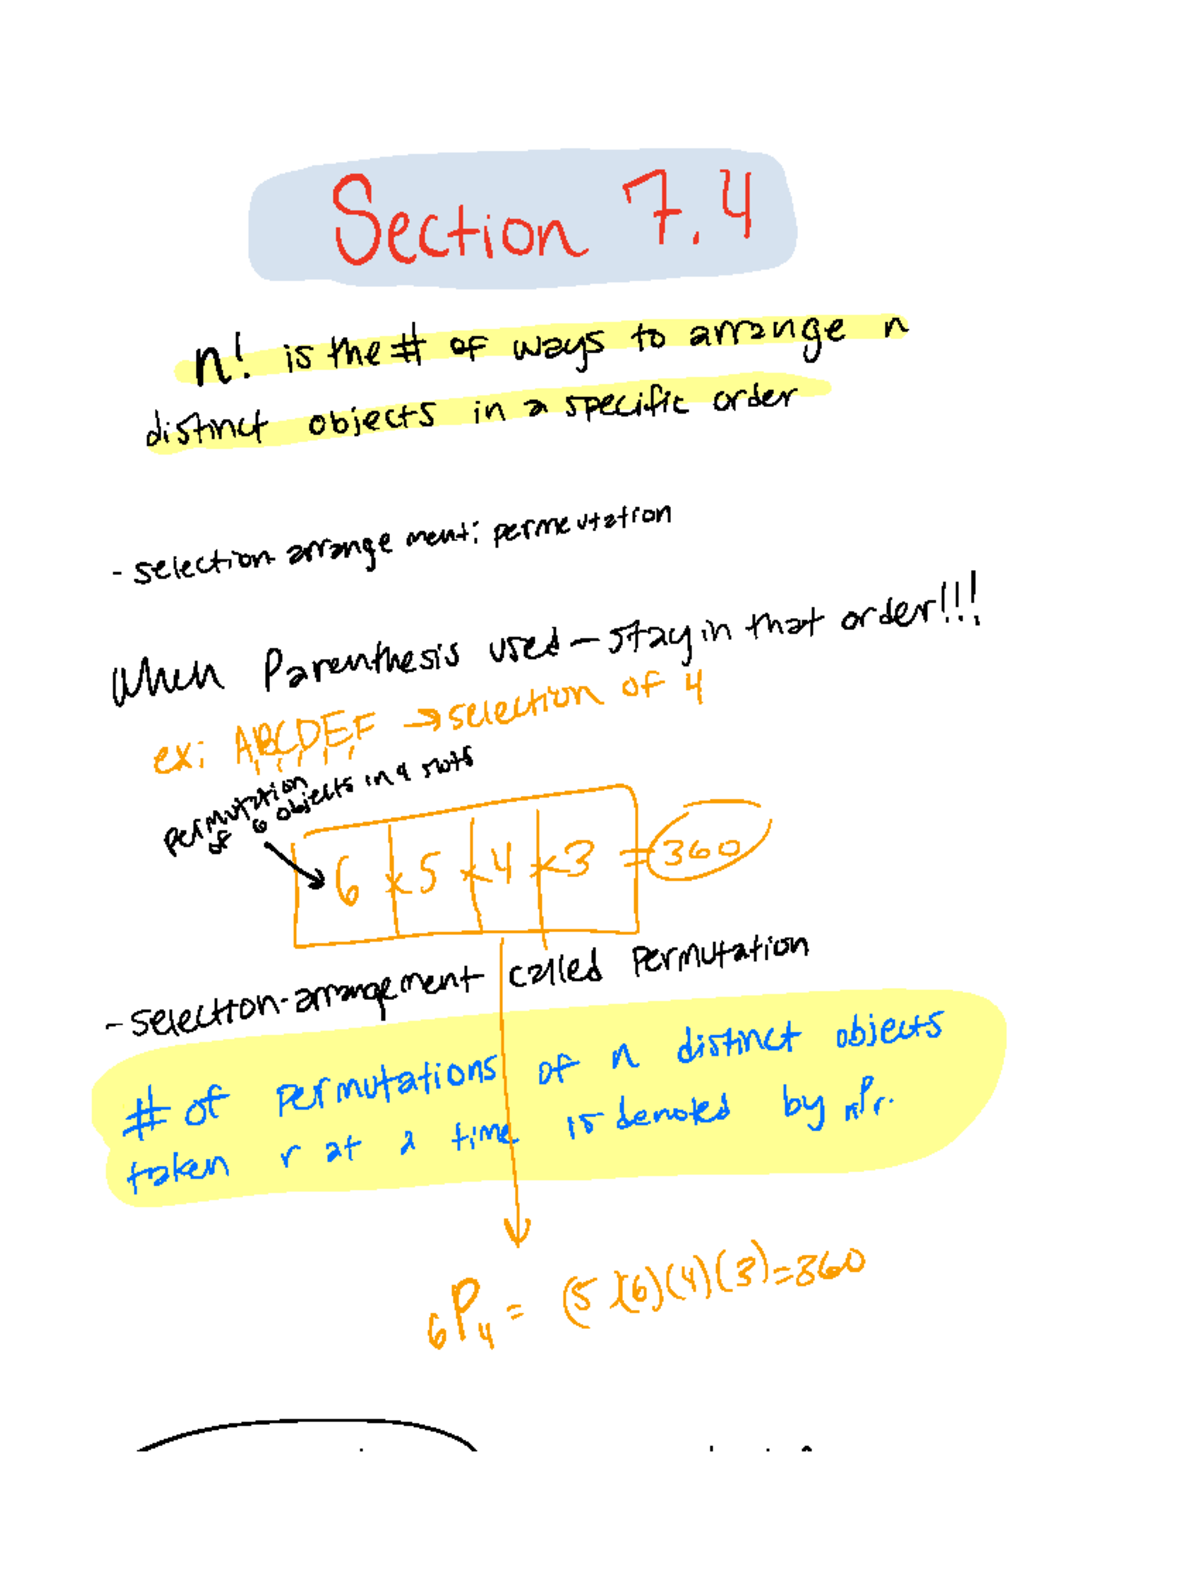 Section 7.4
n! is the # of ways to arrange n
distinct objects in a specific order
- selection arrangement: permeutation
When Parenthesis used – stay in that order!!!
ex: ABCDEF → selection of 4
permutation
of 6 objects in 4 slots
6 x 5 x 4 x 3 = 360
- selection-arrangement called permutation
# of permutations of n distinct objects
taken r at a time is denoted by nPr.
6P4 = (5)(6)(4)(3)=360